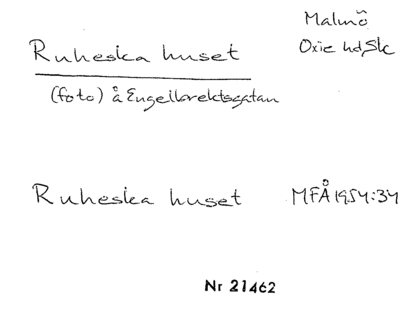 Malmö
Oxie hd, Sk
Ruheska huset
(foto) å Engelbrektsgatan
Ruheska huset MFÅ 1954:34
Nr 21462